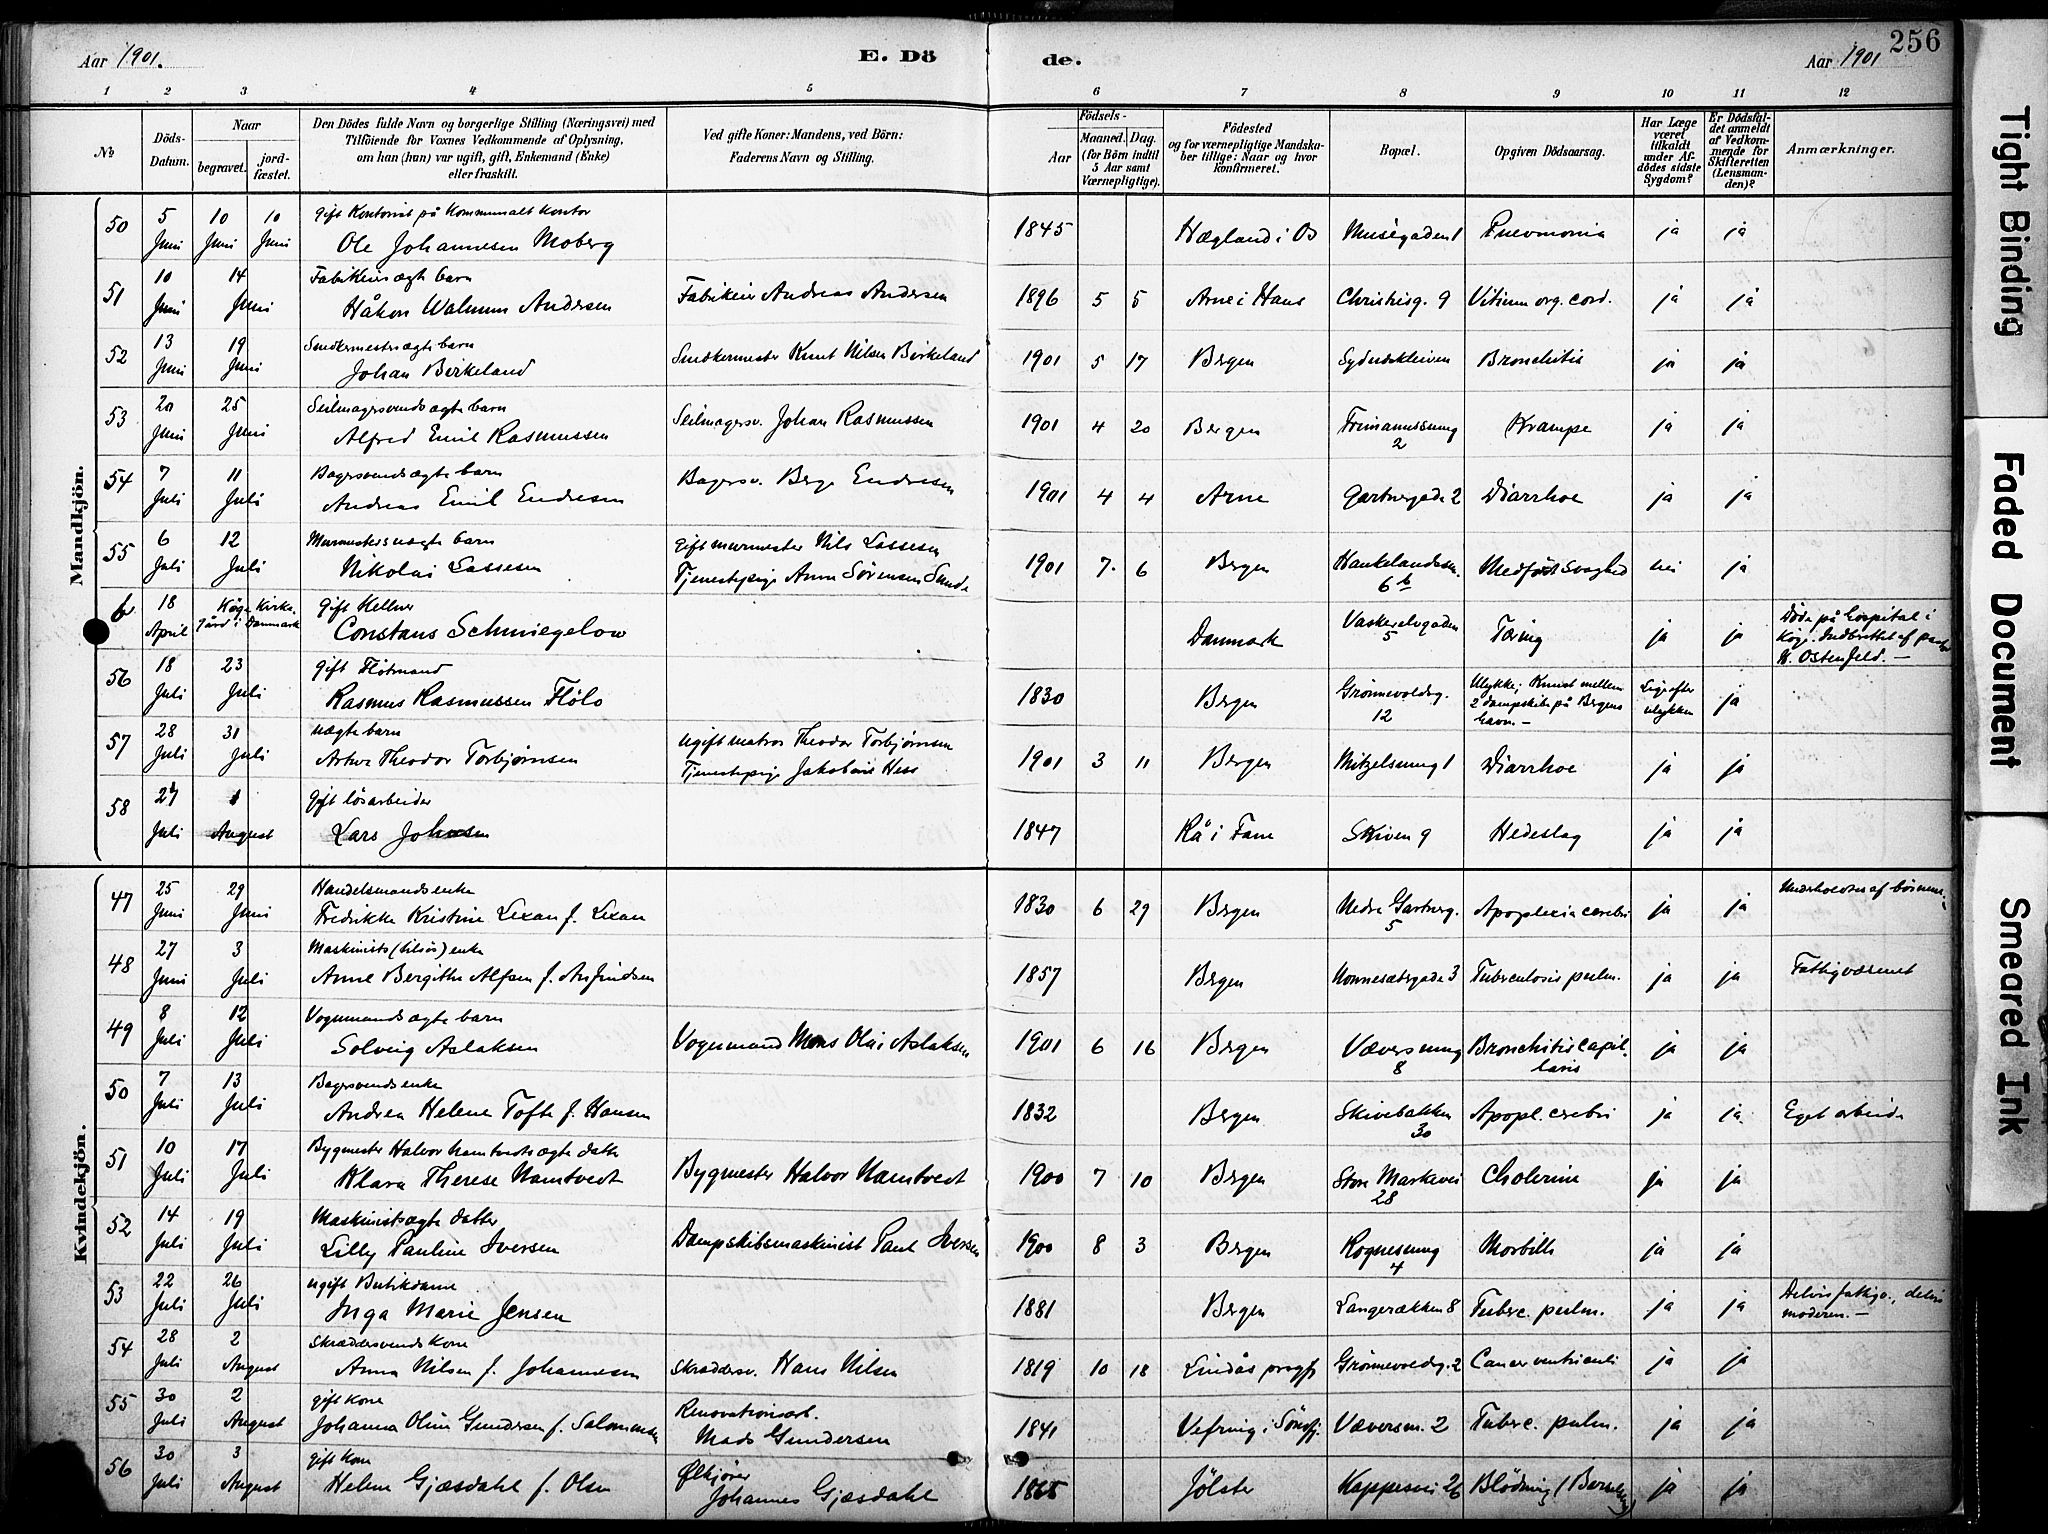 Aar 1901.
E. Dö
de.
Aar 1901
256
1 2 3 4 5 6 7 8 9 10 11 12
№
Döds-Datum.
Naar
begravet.
jordfæstet.
Den Dödes fulde Navn og borgerlige Stilling (Næringsvei) med
Tilföiende for Voxnes Vedkommende af Oplysning,
om han (hun) var ugift, gift, Enkemand (Enke)
eller fraskilt.
Ved gifte Koner: Mandens, ved Börn:
Faderens Navn og Stilling.
Födsels-
Aar
Maaned. Dag.
(for Börn indtil
5 Aar samt
Værnepligtige).
Födested
og for værnepligtige Mandska-
ber tillige: Naar og hvor
konfirmeret.
Bopæl.
Opgiven Dödsaarsag.
Har Læge
været
tilkaldt
under Af-
dödes sidste
Sygdom?
Er Dödsfal-
det anmeldt
af Vedkom-
mende for
Skifteretten
(Lensman-
den)?
Anmærkninger.
Mandkjön.
50 5 Juni 10 Juni 10 Juni gift Kontorist på Kommunalt kontor
Ole Johannesen Moberg 1845 Hægland i Os Muségaden 1 Pneumonia ja ja
51 10 Juni 14 Juni Fabrikeiers ægte barn
Håkon Walmum Andersen Fabrikeier Andreas Andersen 1896 5 5 Arne i Haus Christiesg. 9 Vitium org. cord. ja ja
52 13 Juni 19 Juni Snedkermesters ægte barn
Johan Birkeland Snedkermester Knut Nilsen Birkeland 1901 5 17 Bergen Sydneskleiven Bronchitis ja ja
53 20 Juni 25 Juni Seilmagersvends ægte barn
Alfred Emil Rasmussen Seilmagersv. Johan Rasmussen 1901 4 20 Bergen 2 Krampe ja ja
54 7 Juli 11 Juli Bagersvends ægte barn
Andreas Emil Endresen Bagersv. Berge Endresen 1901 4 4 Arne Gartnergade 2 Diarrhoe ja ja
55 6 Juli 12 Juli Murmesters uægte barn
Nikolai Lassesen gift murmester Nils Lassesen
Tjenestepige Anna Sørensen Sunde 1901 7. 6 Bergen Haukelandsvn. 6 b Medfødt svaghed nei ja
b 18 April Køge Kirkegård i Danmark gift Kellner
Constans Schmiegelow Danmark Vaskerelvgaden 5 Tæring ja ja Døde på hospital i
Köge. Indberettet af pastor
K. Ostenfeld. —
56 18 Juli 23 Juli gift Flötmand
Rasmus Rasmussen Flölo 1830 Bergen Grønnevoldsg. 12 Ulykke; Knust mellem
2 dampskibe på Bergens
havn. — Lige efter
ulykken ja
57 28 Juli 31 Juli uægte barn
Arthur Theodor Torbjørnsen ugift matros Theodor Torbjørnsen
Tjenestepige Jakobine Hess 1901 3 11 Bergen Mitzelsmug 1 Diarrhoe ja ja
58 27 Juli 1 August gift løsarbeider
Lars Johnsen 1847 Rå i Fane Skiven 9 Hedeslag ja ja
Kvindekjön.
47 25 Juni 29 Juni Handelsmands enke
Fredrikke Kristine Lexau f. Lexau 1830 6 29 Bergen Nedre Gartnerg. 5 Apoplexia cerebri ja ja Underholdtes af børnene
48 27 Juni 3 Juli Maskinists (tilsøs) enke
Anne Bergitte Alfsen f. Arfindsen 1857 Bergen Nonnesætergade 3 Tuberculosis pulm. ja ja Fattigvæsenet
49 8 Juli 12 Juli Vognmands ægte barn
Solveig Aslaksen Vognmand Mons Olai Aslaksen 1901 6 16 Bergen Væversmug 8 Bronchitis capil-
laris ja ja
50 7 Juli 13 Juli Bagersvends enke
Andrea Helene Tofte f. Hansen 1832 Bergen Skivebakken 30 Apopl. cerebri ja ja Eget arbeide
51 10 Juli 17 Juli Bygmester Halvor Namtvedts ægte datter
Klara Therese Namtvedt Bygmester Halvor Namtvedt 1900 7 10 Bergen Store Markevei 28 Cholerine ja ja
52 14 Juli 19 Juli Maskinists ægte datter
Lilly Pauline Iversen Dampskibsmaskinist Paul Iversen 1900 8 3 Bergen Rognesmug 4 Morbilli ja ja
53 22 Juli 26 Juli ugift Butikdame
Inga Marie Jensen 1881 Bergen Langerækken 8 Tuberc. pulm. ja ja Delvis fattigv., delvis
moderen. —
54 28 Juli 2 August Skræddersvends Kone
Anna Nilsen f. Johannesen Skræddersv. Hans Nilsen 1819 10 18 Lindås prgj. Grønnevoldsg. 2 Cancer ventriculi ja ja
55 30 Juli 2 August gift Kone
Johanna Oline Gundersen f. Salomonsen Renovationsarb.
Mads Gundersen 1841 Vefring i Søndfj. Væversm. 2 Tuberc. pulm. ja ja
56 30 Juli 3 August gift Kone
Helene Gjæsdahl f. Olsen Ølkjører
Johannes Gjæsdahl 1865 Jölster Kappesvei 26 Blödning (Barselseng) ja ja
Tight Binding
Faded Document
Smeared Ink